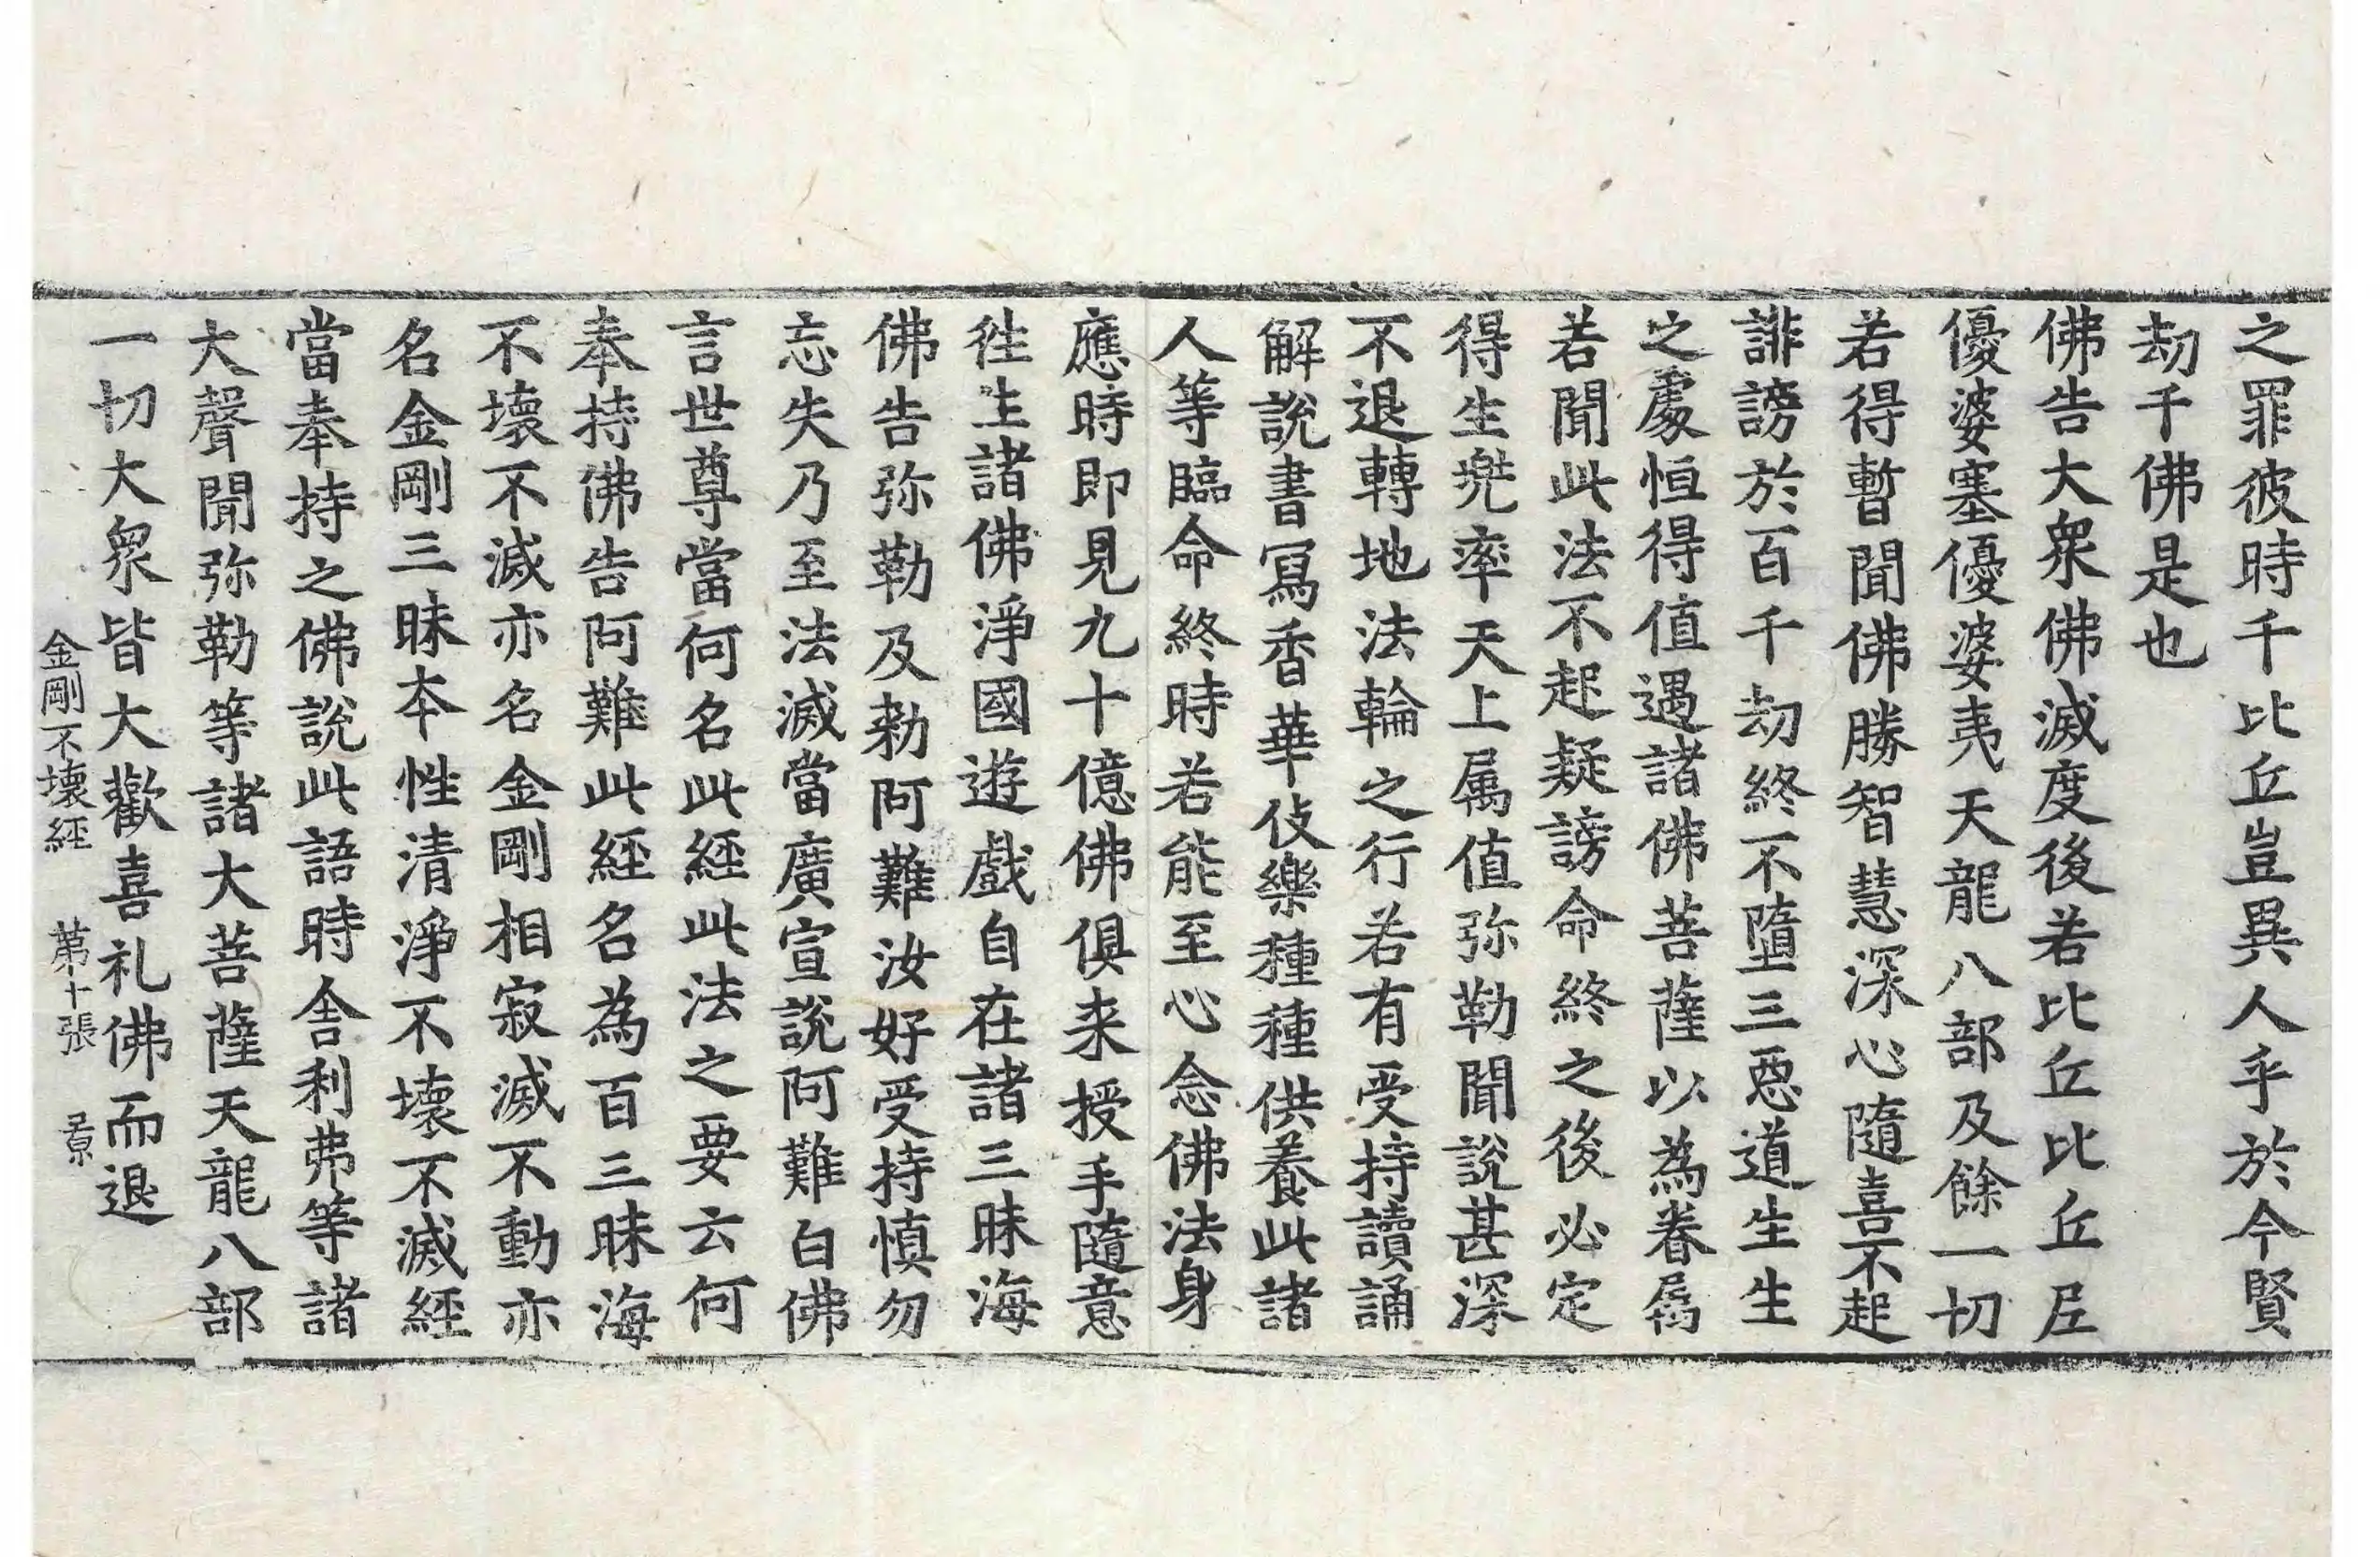 之罪彼時千比丘豈異人乎於今賢
劫千佛是也
佛告大衆佛滅度後若比丘比丘尼
優婆塞優婆夷天龍八部及餘一切
若得暫聞佛勝智慧深心隨喜不起
誹謗於百千劫終不墮三惡道生生
之處恒得值遇諸佛菩薩以為眷屬
若聞此法不起疑謗命終之後必定
得生兜率天上属值弥勒聞說甚深
不退轉地法輪之行若有受持讀誦
解說書寫香華伎樂種種供養此諸
人等臨命終時若能至心念佛法身
應時即見九十億佛俱来授手隨意
徃生諸佛淨國遊戲自在諸三昧海
佛告弥勒及勑阿難汝好受持慎勿
忘失乃至法滅當廣宣說阿難白佛
言世尊當何名此經此法之要云何
奉持佛告阿難此經名為百三昧海
不壞不滅亦名金剛相寂滅不動亦
名金剛三昧本性清淨不壞不滅經
當奉持之佛說此語時舍利弗等諸
大聲聞弥勒等諸大菩薩天龍八部
一切大衆皆大歡喜礼佛而退
金剛不壞經 第十張 景